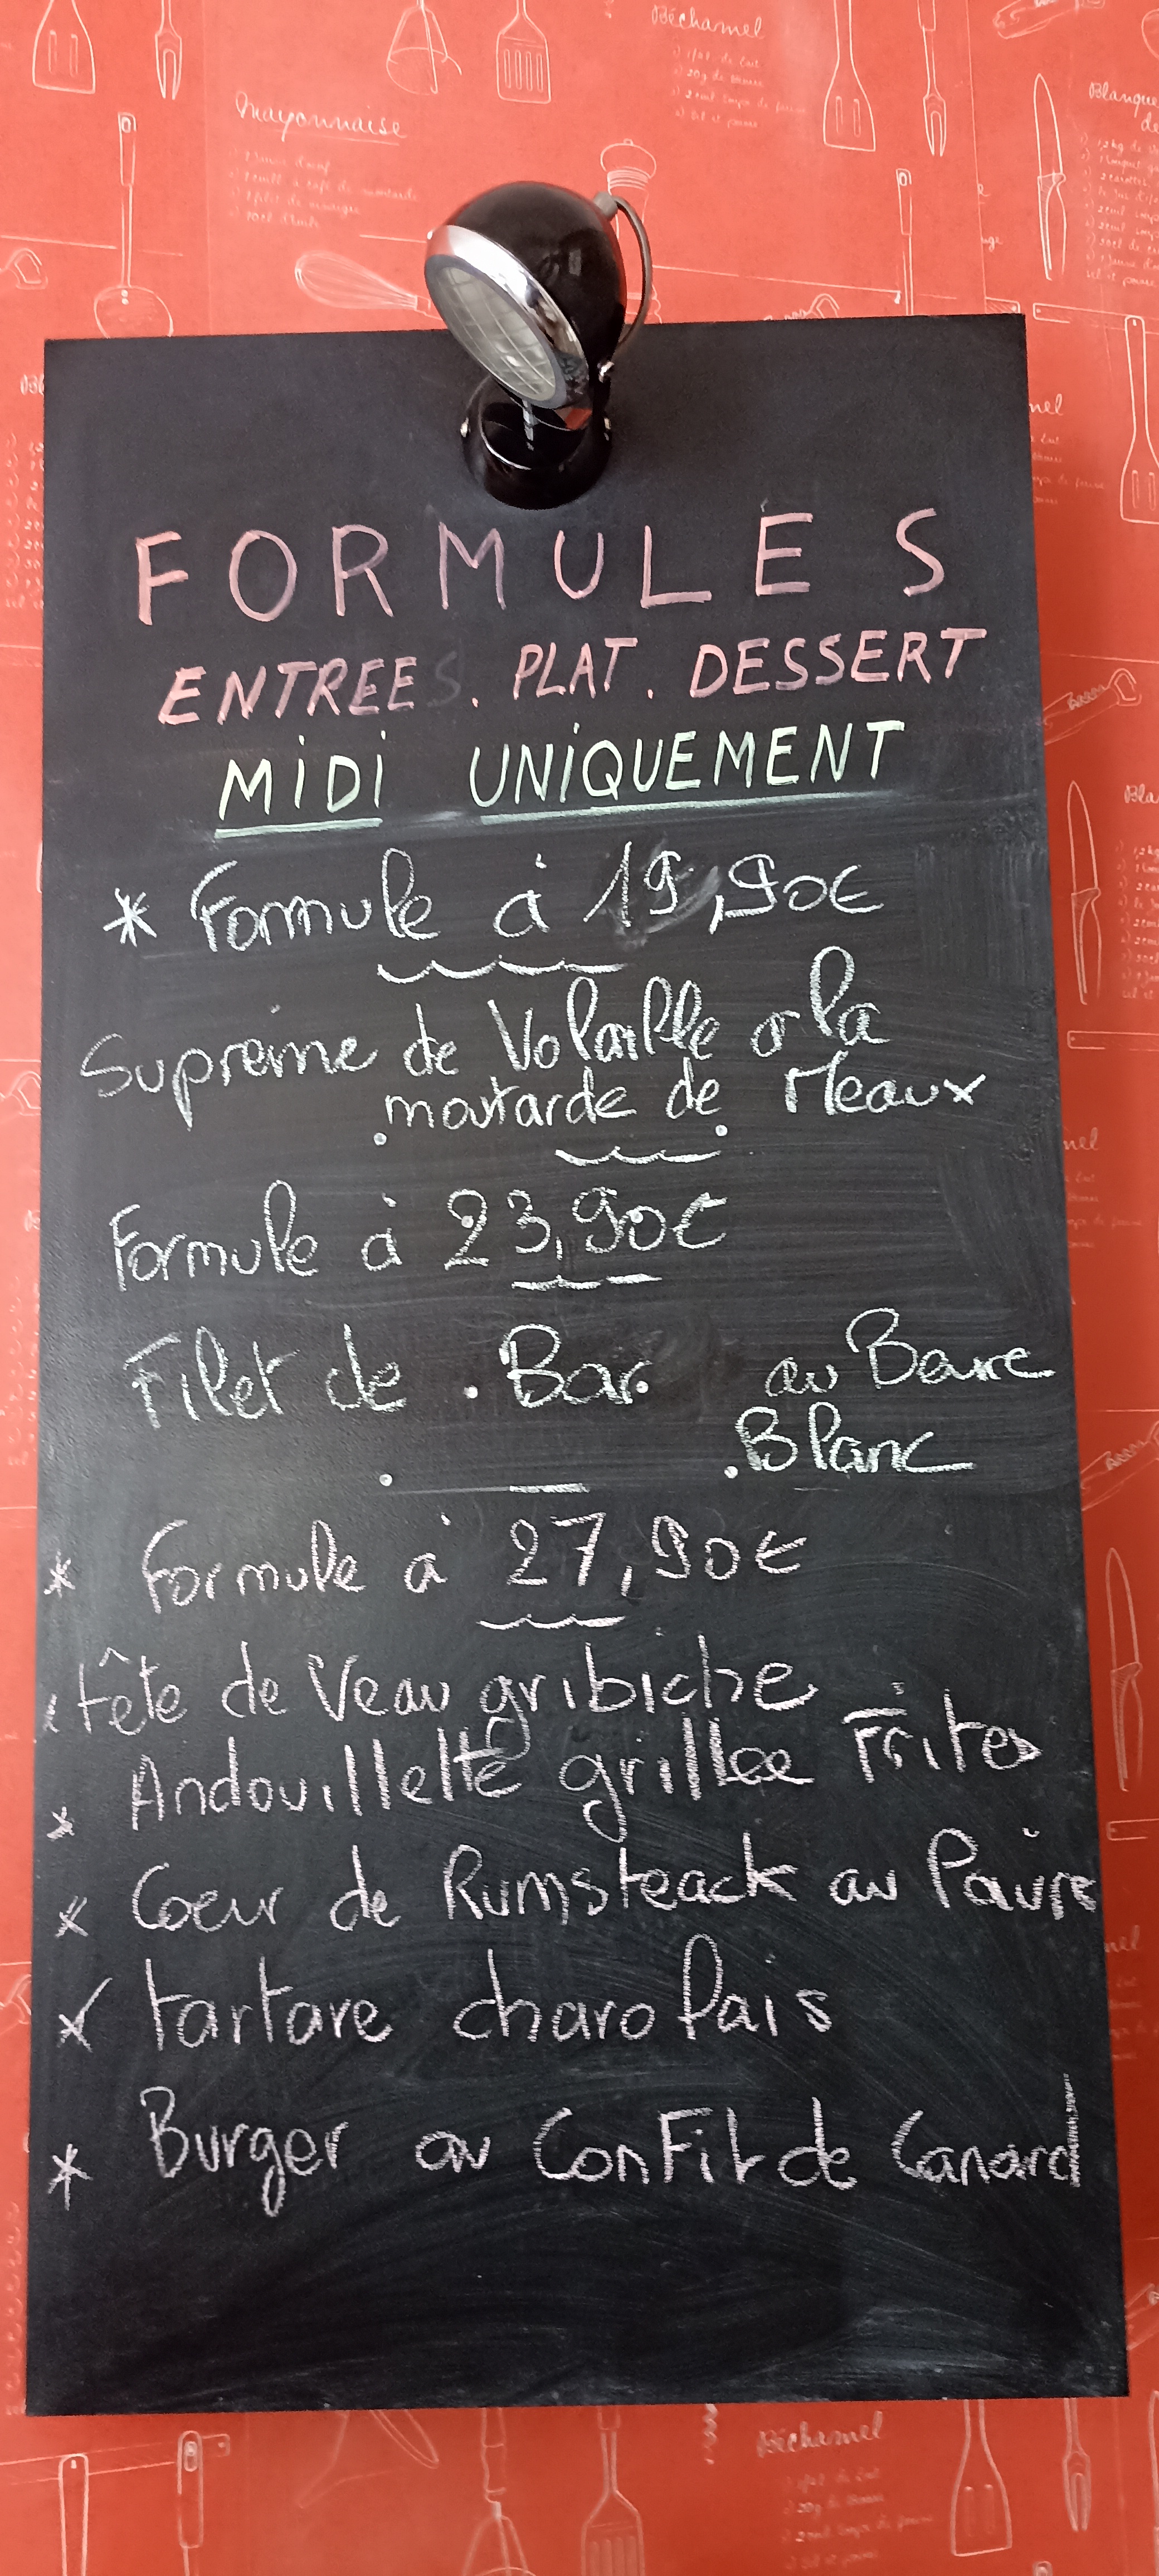 Béchamel
Mayonnaise
FORMULES
ENTREE . PLAT . DESSERT
MIDI UNIQUEMENT
* Formule à 19,90€
Suprême de Volaille a la
moutarde de Meaux
Formule à 23,90€
Filet de Bar au Beurre
Blanc
* Formule à 27,90€
tête de Veau gribiche
* Andouillette grillée Frites
* Coeur de Rumsteack au Poivre
* tartare charolais
* Burger au Confit de Canard
Béchamel